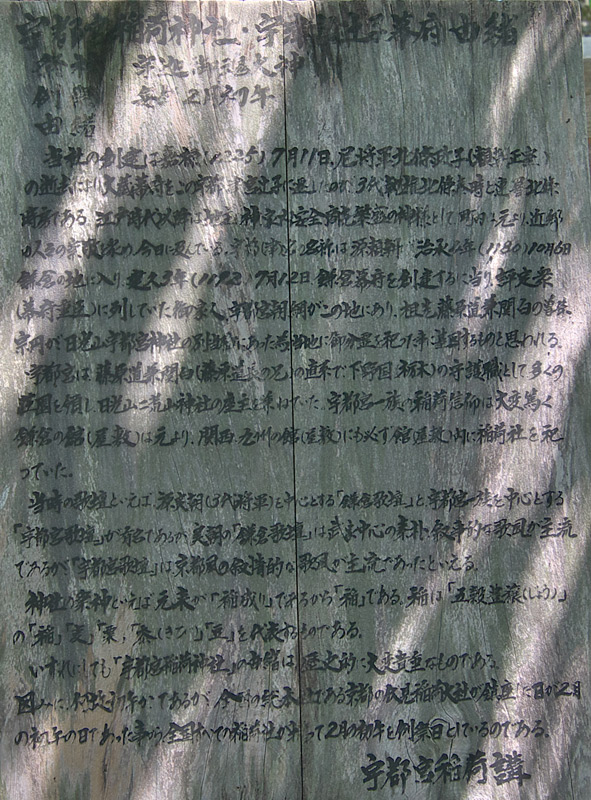 宇都宮稲荷神社・宇都宮辻子幕府由緒
祭神
例祭 毎年2月初午
由緒
当社の創建は嘉禄(1225)7月11日、尼将軍北條政子(頼朝正室)
の逝去により大蔵幕府をこの宇都宮辻子に遷したのが3代執権北條泰時と連署北條
時房である。江戸時代
の人々の崇敬を集め、今日に及んでいる。宇都宮辻子の名称は源頼朝が治承4年(1180)10月6日
鎌倉の地に入り、建久3年(1192)7月12日、鎌倉幕府を創建するに当り、評定衆
(幕府重臣)に列していた御家人、宇都宮朝綱がこの地にあり、祖先藤原道兼関白の曽孫
宗円が日光山宇都宮神社の別当職にあった為当地に御分霊を祀った事に基因するものと思われる。
宇都宮は、藤原道兼関白(藤原道長の兄)の直系で、下野国(栃木)の守護職として多くの
荘園を領し、日光山二荒山神社の座主を兼ねていた。宇都宮一族の稲荷信仰は大変篤く
鎌倉の館(屋敷)は元より、関西、九州の館(屋敷)にも必ず館(屋敷)内に稲荷社を祀
っていた。
当時の歌壇といえば、源実朝(3代将軍)を中心とする「鎌倉歌壇」と宇都宮一族を中心とする
「宇都宮歌壇」が有名であるが、実朝の「鎌倉歌壇」は武士中心の素朴、叙事的な歌風が主流
であるが「宇都宮歌壇」は京都風の叙情的な歌風が主流であったといえる。
神社の祭神といえば元来が「稲成り」であるから「稲」である。稲は「五穀造穣(じょう)」
の「稲」「麦」「粟」「黍(きび)」「豆」を代表するものである。
いずれにしても「宇都宮稲荷神社」の由緒は、歴史的に大変貴重なものである。
因みに、何故初午かであるが、全国の総本社である京都の伏見稲荷大社が鎮座した日が2月
の初午の日であった事から全国すべての稲荷社が来って2月の初午を例祭日としているのである。
宇都宮稲荷講